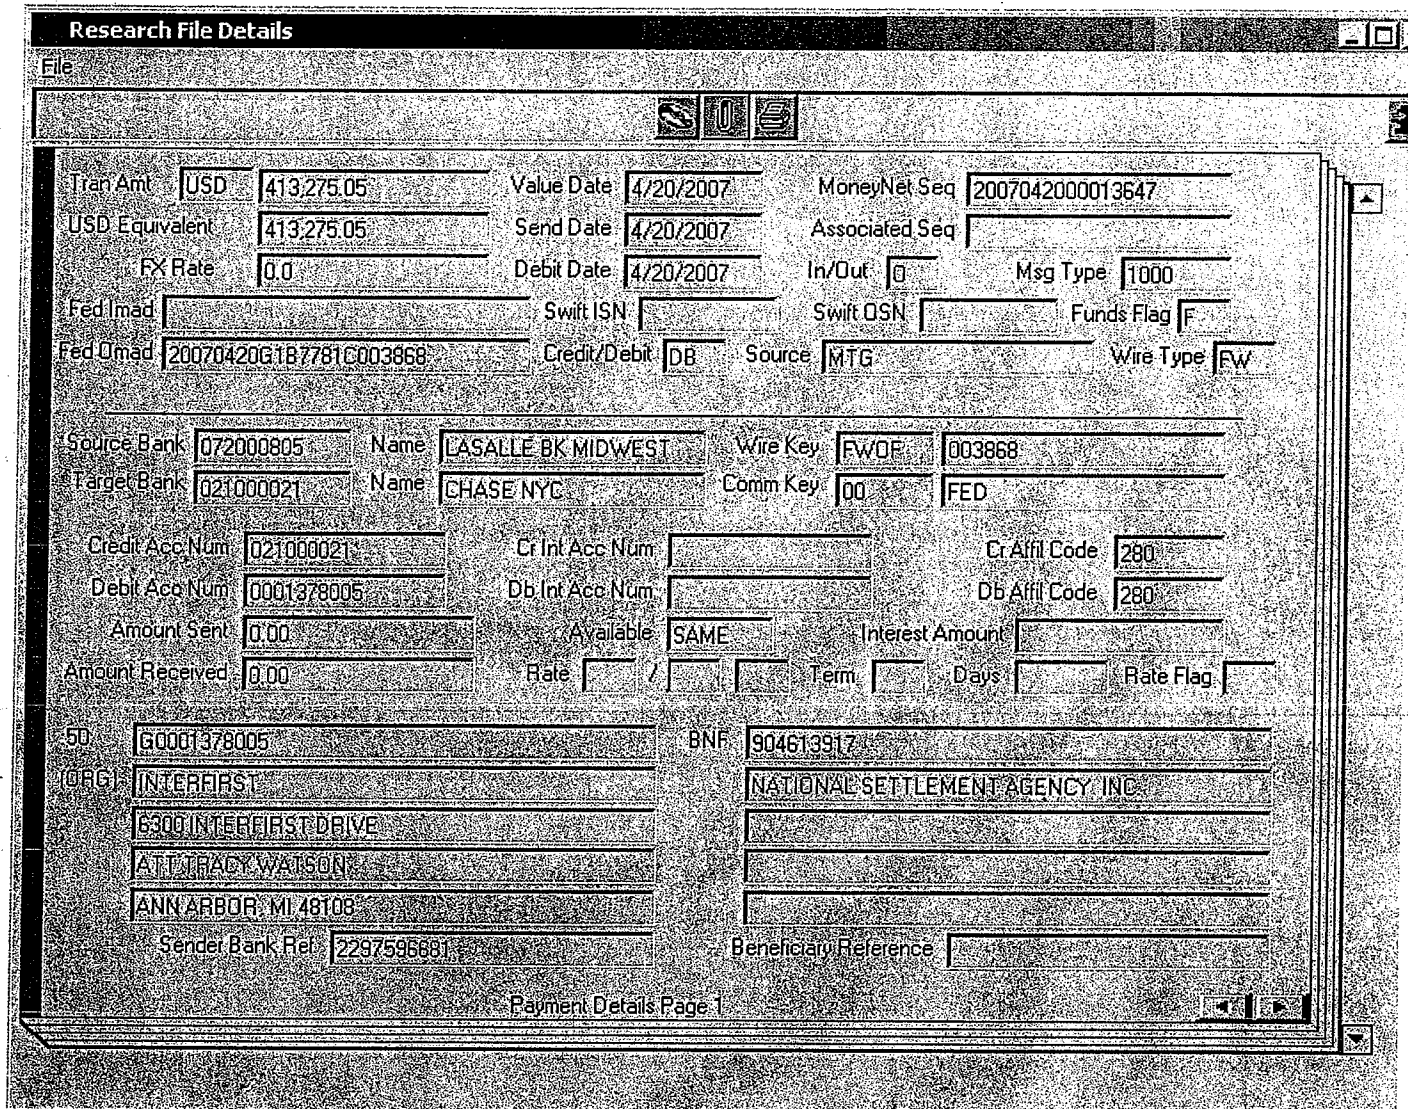 Research File Details
File
Tran Amt USD 413,275.05 Value Date 4/20/2007 MoneyNet Seq 2007042000013647
USD Equivalent 413,275.05 Send Date 4/20/2007 Associated Seq
FX Rate 0.0 Debit Date 4/20/2007 In/Out O Msg Type 1000
Fed Imad Swift ISN Swift OSN Funds Flag F
Fed Omad 20070420G1B7781C003868 Credit/Debit DB Source MTG Wire Type FW
Source Bank 072000805 Name LASALLE BK MIDWEST Wire Key FWOF 003868
Target Bank 021000021 Name CHASE NYC Comm Key 00 FED
Credit Acc Num 021000021 Cr Int Acc Num Cr Affil Code 280
Debit Acc Num 0001378005 Db Int Acc Num Db Affil Code 280
Amount Sent 0.00 Available SAME Interest Amount
Amount Received 0.00 Rate / Term Days Rate Flag
50 G0001378005 BNF 904613917
(ORG) INTERFIRST NATIONAL SETTLEMENT AGENCY, INC.
6300 INTERFIRST DRIVE
ATT TRACY WATSON
ANN ARBOR, MI 48108
Sender Bank Ref 2297596681 Beneficiary Reference
Payment Details Page 1